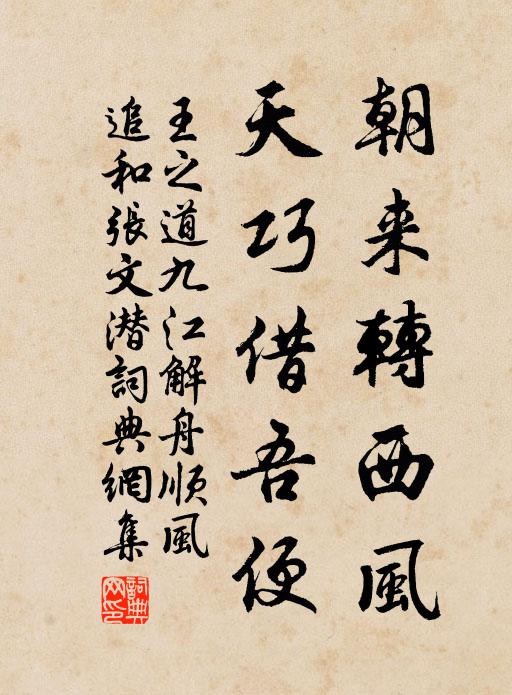 朝来轉西風
天巧借吾便
王之道九江解舟順風
追和張文潜詞典網集
詞典网印